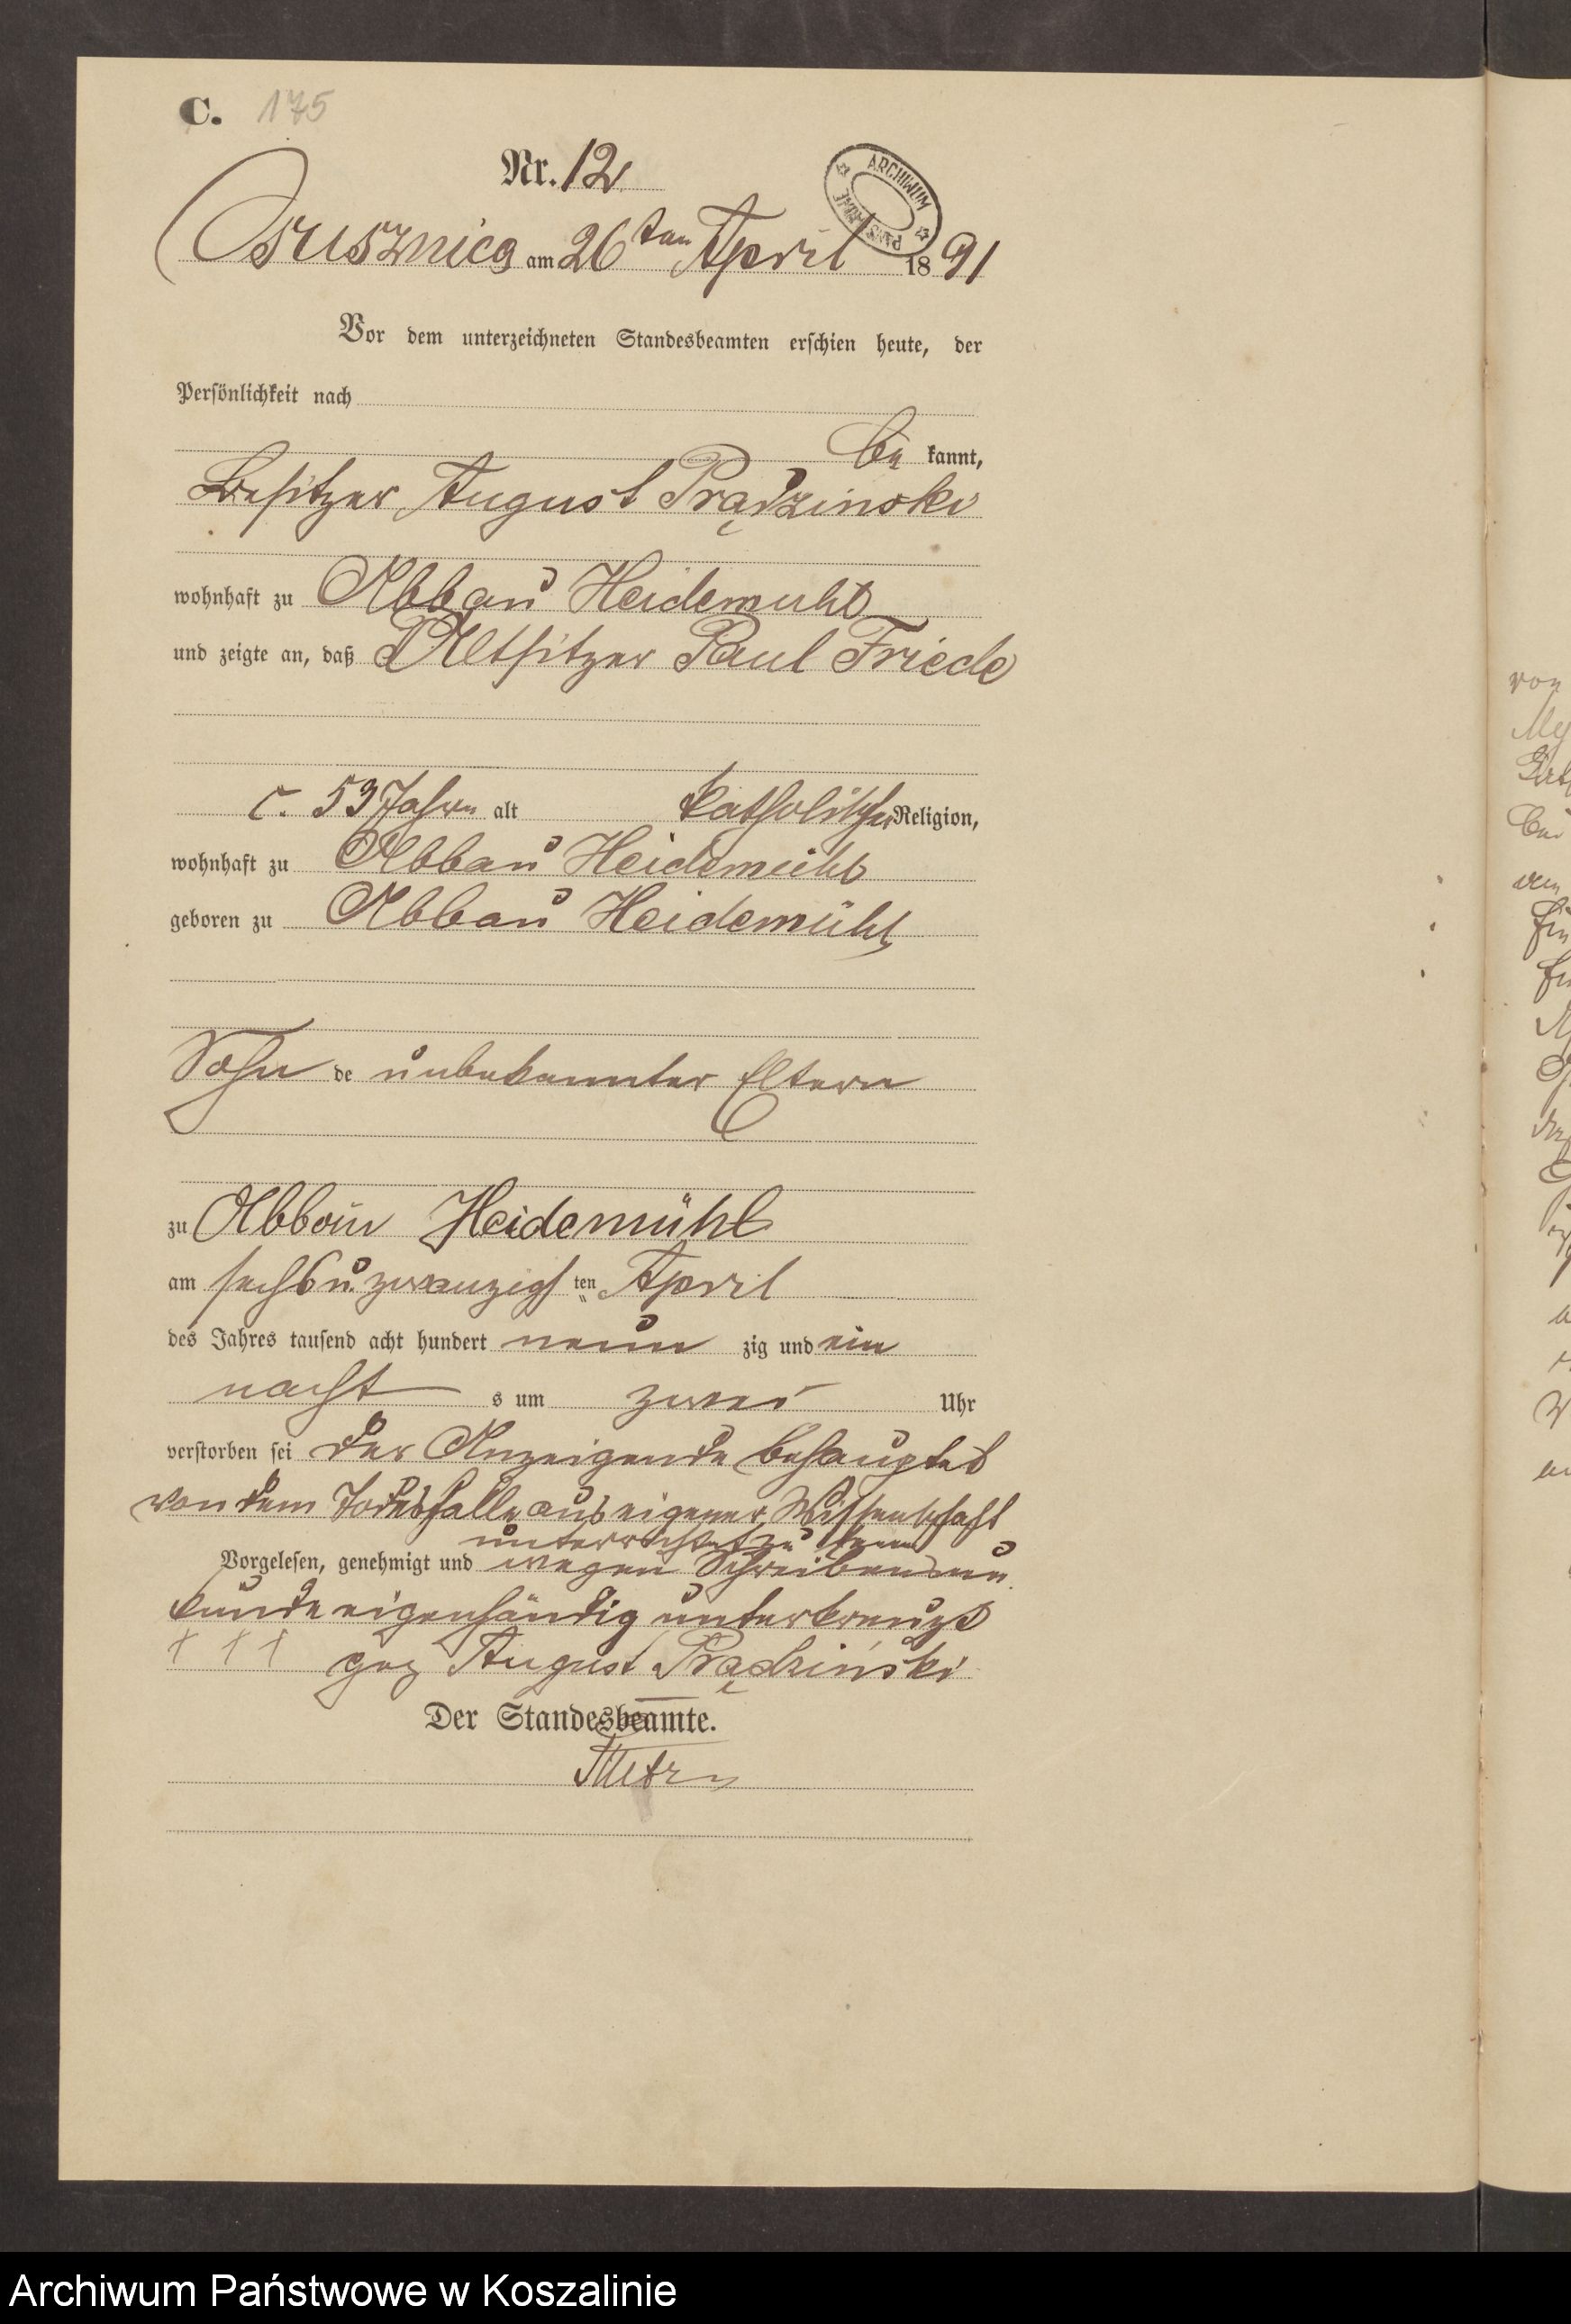 C. 175
Nr. 12
ARCHIWUM PAŃSTWOWE
Osusznica am 26ten April 1891
Vor dem unterzeichneten Standesbeamten erschien heute, der
Persönlichkeit nach
be kannt,
Besitzer August Prądzinski
wohnhaft zu Abbau Heidemuhl
und zeigte an, daß Altsitzer Paul Friede
c. 53 Jahren alt katholischer Religion,
wohnhaft zu Abbau Heidemühl
geboren zu Abbau Heidemühl
Sohn de unbekannter Eltern
zu Abbau Heidemühl
am sechs u. zwanzigsten April
des Jahres tausend acht hundert neun zig und ein
nacht s um zwei Uhr
verstorben sei der Anzeigende behauptet
von dem Todesfalle aus eigener Wissenschaft
unterrichtet zu sein
Vorgelesen, genehmigt und wegen Schreibensun
kunde eigenhändig unterkreuzt
+ + + gez August Prądziński
Der Standesbeamte.
von
Archiwum Państwowe w Koszalinie